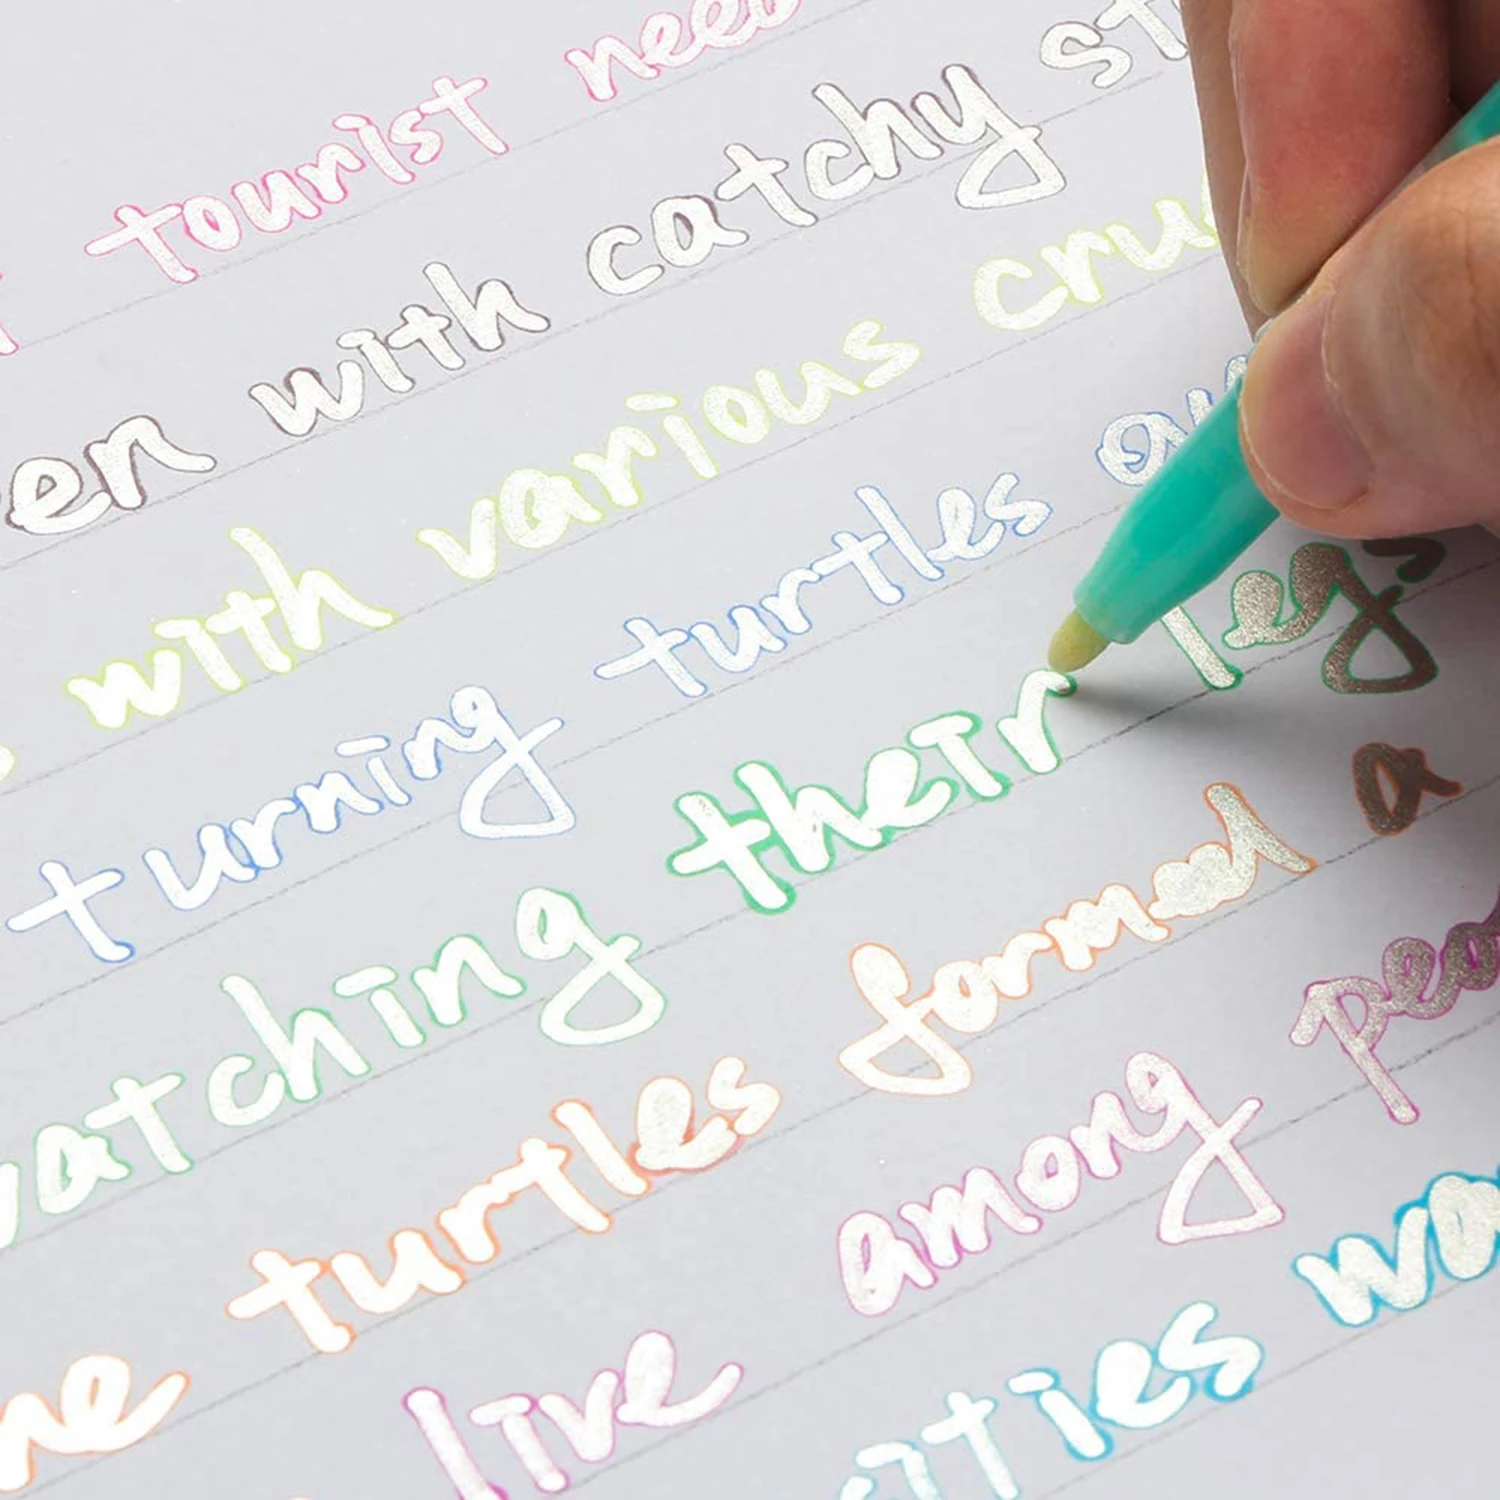 tourist need
en with catchy
with various
turning turtles
watching their legs
turtles formed a
live among